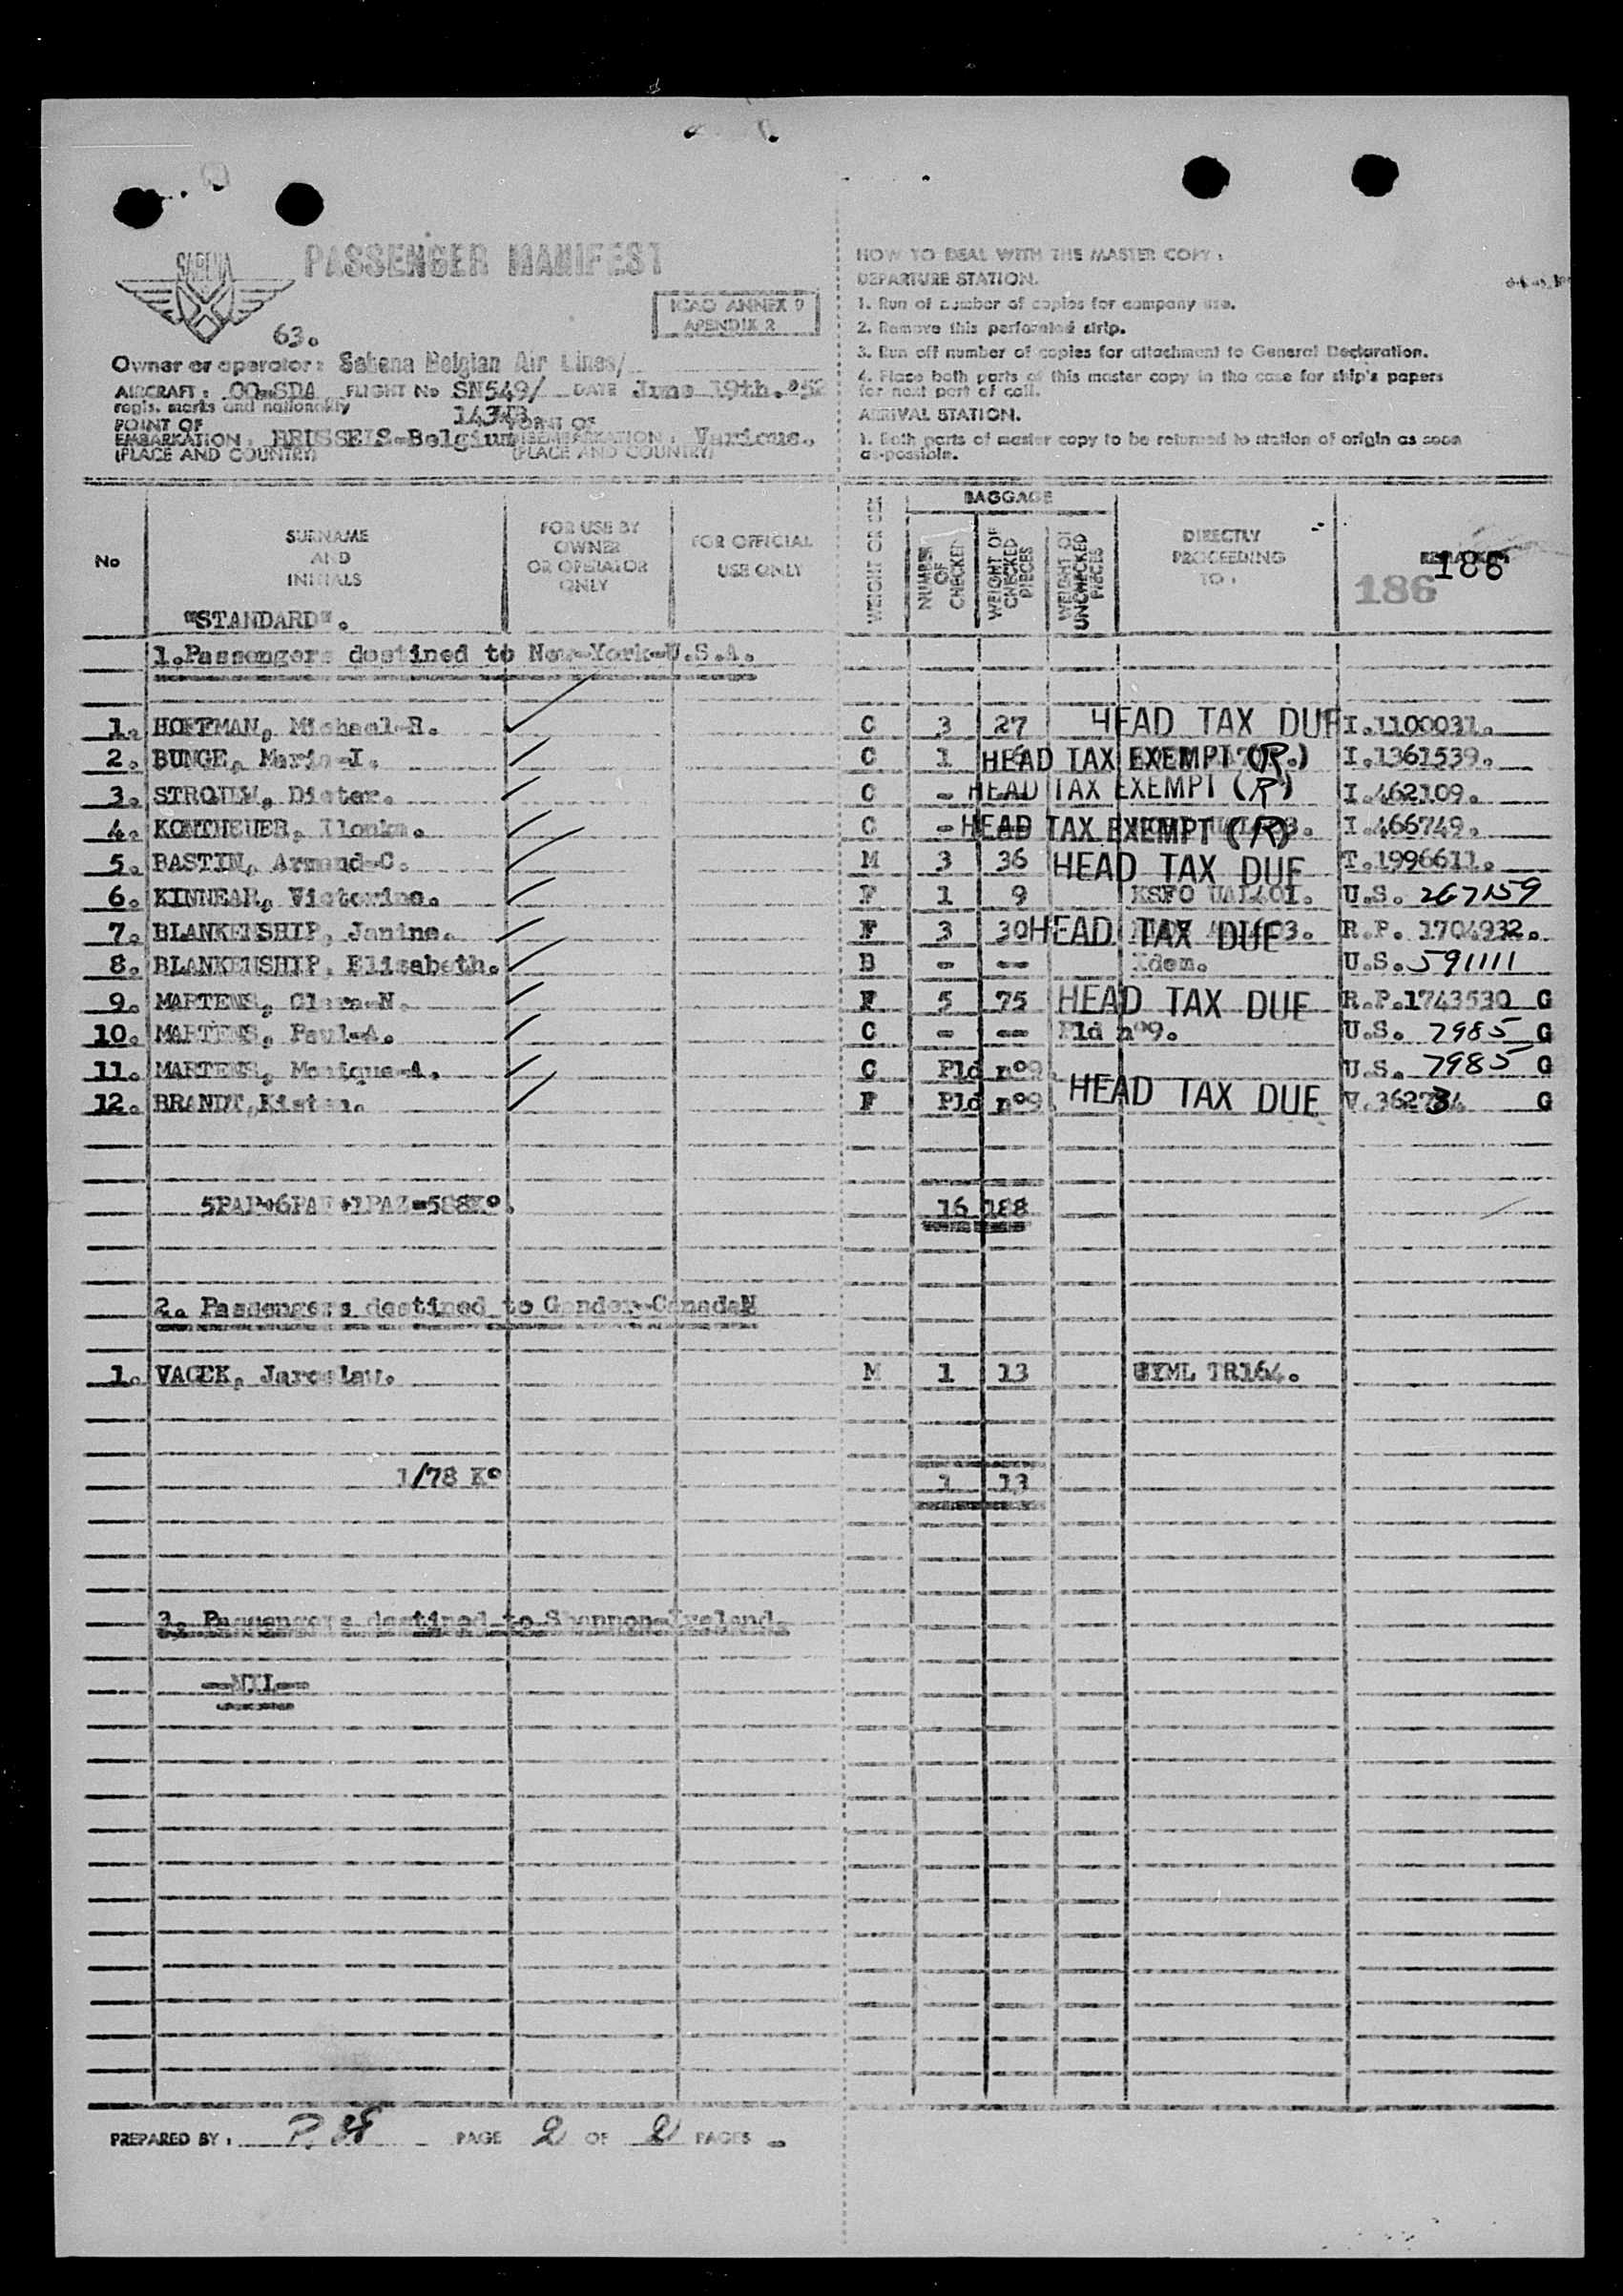 SABENA
PASSENGER MANIFEST
ICAO ANNEX 9
APENDIX 2
63.
Owner or operator: Sabena Belgian Air Lines/
AIRCRAFT: OO-SDA FLIGHT No SN549/ DATE June 19th.°52
regis. marks and nationality
POINT OF EMBARKATION: BRUSSELS-Belgium
(PLACE AND COUNTRY)
POINT OF DISEMBARKATION: Various.
(PLACE AND COUNTRY)
HOW TO DEAL WITH THE MASTER COPY:
DEPARTURE STATION.
1. Run of number of copies for company use.
2. Remove this perforated strip.
3. Run off number of copies for attachment to General Declaration.
4. Place both parts of this master copy in the case for ship's papers
for next port of call.
ARRIVAL STATION.
1. Both parts of master copy to be returned to station of origin as soon
as possible.
No
SURNAME
AND
INITIALS
FOR USE BY
OWNER
OR OPERATOR
ONLY
FOR OFFICIAL
USE ONLY
BAGGAGE
NUMBER OF CHECKED
WEIGHT OF CHECKED PIECES
WEIGHT OF UNCHECKED PIECES
DIRECTLY
PROCEEDING
TO:
186
186
"STANDARD".
1.Passengers destined to New-York-U.S.A.
1. HOFFMAN, Michael-R. C 3 27 HEAD TAX DUE I.1100031.
2. BUNGE, Mario-I. C 1 HEAD TAX EXEMPT (R.) I.1361539.
3. Dieter. C - HEAD TAX EXEMPT (R) I.462109.
4. Ilonka. C - HEAD TAX EXEMPT (R) I.466749.
5. BASTIN, Armand-C. M 3 36 HEAD TAX DUE T.1996611.
6. KINNEAR, Victorine. F 1 9 KSFO UAL401. U.S. 267159
7. BLANKENSHIP, Janine. F 3 30 HEAD TAX DUE R.P. 1704932.
8. BLANKENSHIP, Elizabeth. B - -- Idem. U.S. 591111
9. MARTENS, Clara-N. F 5 75 HEAD TAX DUE R.P.1743530 G
10. MARTENS, Paul-A. C - -- Pld n°9. U.S. 7985 G
11. MARTENS, Monique-A. C Pld n°9. U.S. 7985 G
12. BRANDT, F Pld n°9. HEAD TAX DUE G
5PAP+6PAF+1PAZ=588K° 16 188
2. Passengers destined to Gander-Canada
1. VACEK, Jaroslav. M 1 13 TR164.
1/78 K° 1 13
3. Passengers destined to Shannon-Ireland.
--NIL--
PREPARED BY: PAGE 2 OF 2 PAGES